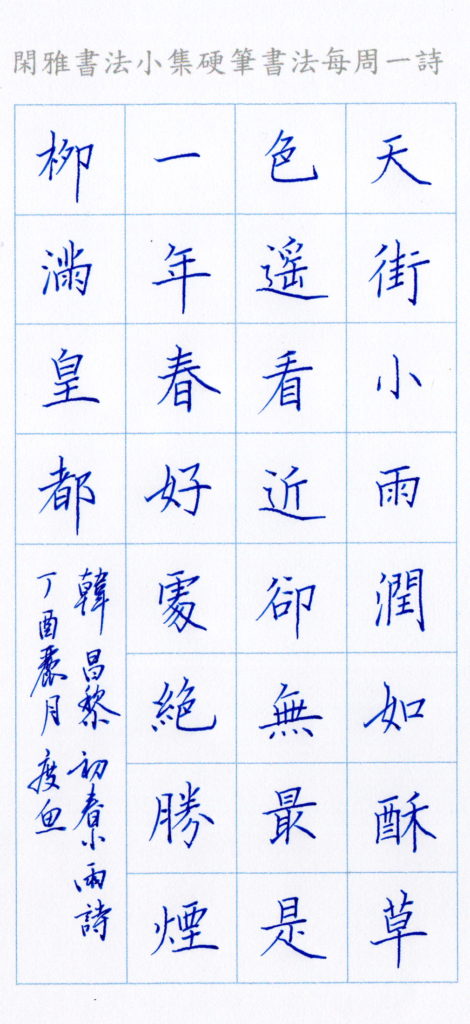 閑雅書法小集硬筆書法每周一詩
天街小雨潤如酥草
色遥看近卻無最是
一年春好處絕勝煙
柳滿皇都
韓昌黎初春小雨詩
丁酉麗月度魚